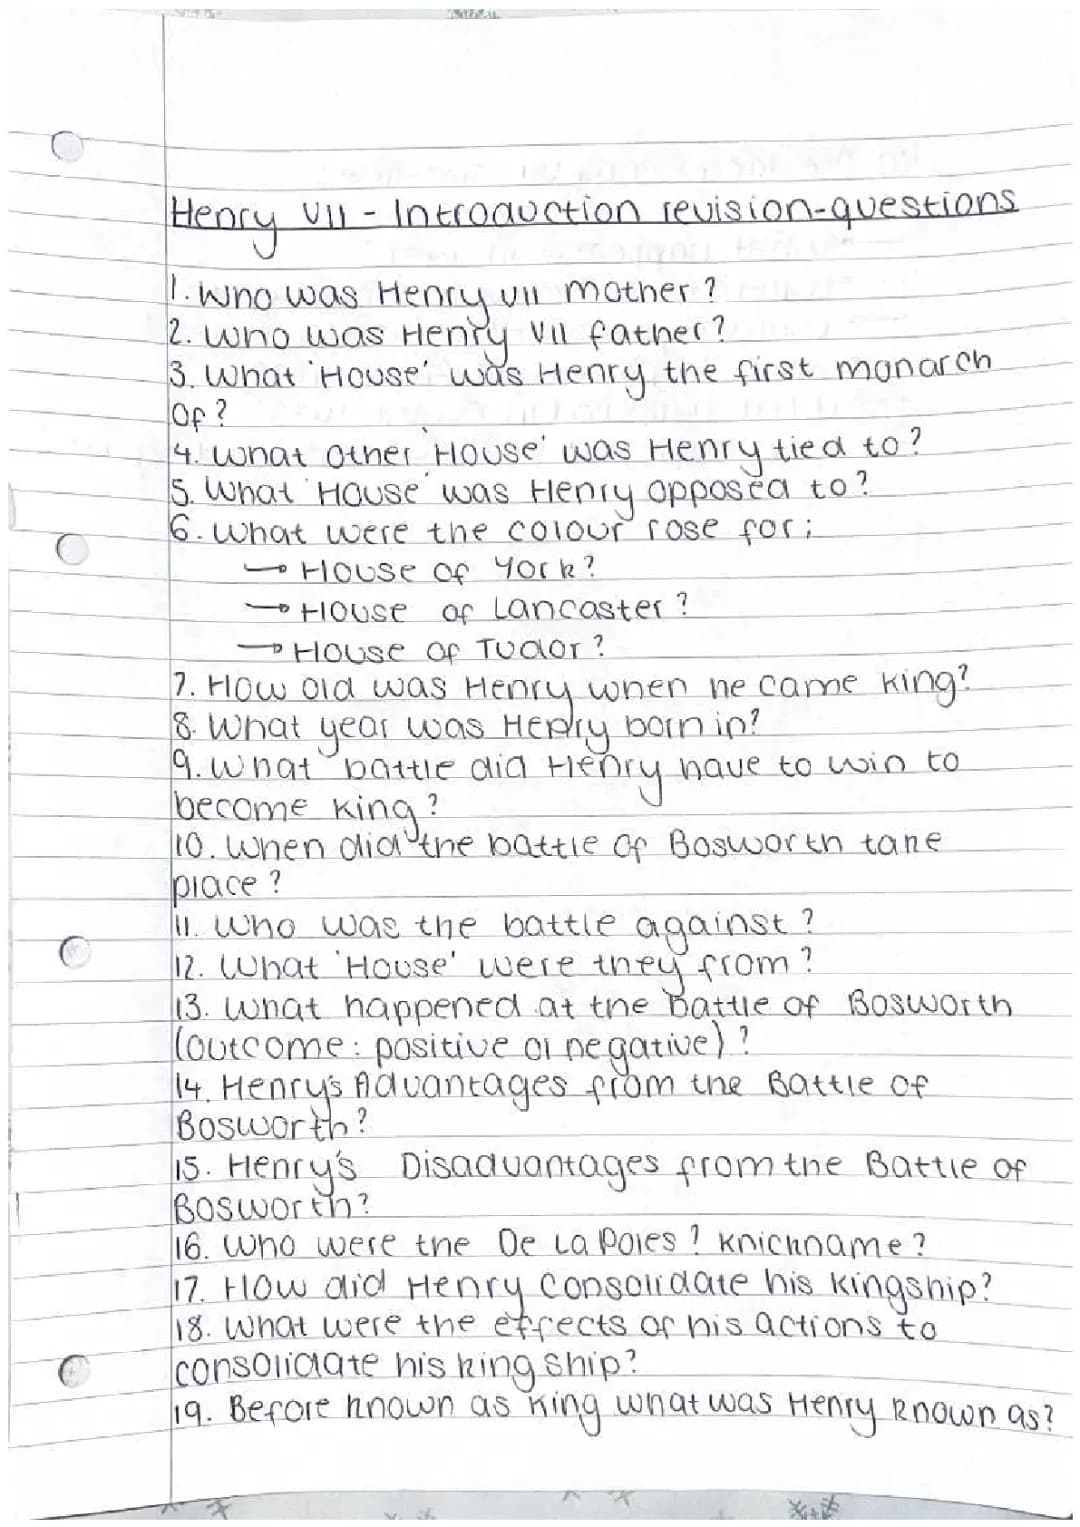 Henry VII - Introduction revision-questions
1. Who was Henry VII mother?
2. Who was Henry VII father?
3. What 'House' was Henry the first monarch
of?
4. What other 'House' was Henry tied to?
5. What 'House' was Henry opposed to?
6. What were the colour rose for:
→ House of York?
→ House of Lancaster?
→ House of Tudor?
7. How old was Henry when he came king?
8. What year was Henry born in?
9. What battle did Henry have to win to
become king?
10. When did the battle of Bosworth take
place?
11. Who was the battle against?
12. What 'House' were they from?
13. What happened at the Battle of Bosworth
(outcome: positive or negative)?
14. Henry's Advantages from the Battle of
Bosworth?
15. Henry's Disadvantages from the Battle of
Bosworth?
16. Who were the De La Poles? knickname?
17. How did Henry Consolidate his kingship?
18. What were the effects of his actions to
consolidate his kingship?
19. Before known as King what was Henry known as?